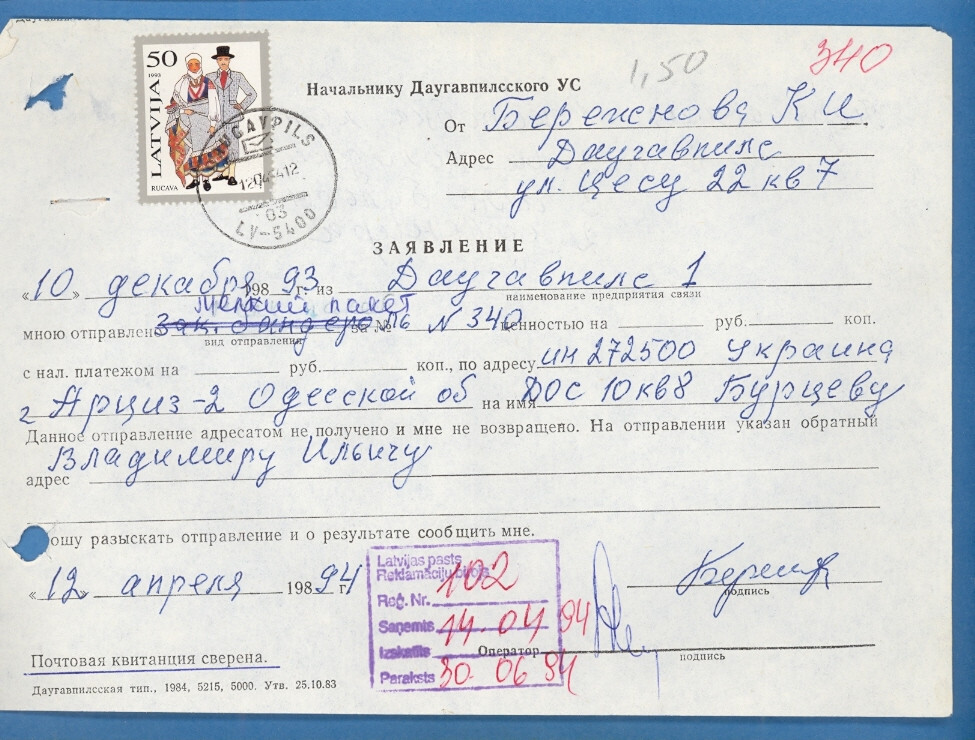 50
1993
LATVIJA
RUCAVA
DAUGAVPILS
12 04 94 12
03
LV-5400
1,50
340
Начальнику Даугавпилсского УС
От Бережнова К И
Адрес Даугавпилс
ул. Цесу 22 кв 7
ЗАЯВЛЕНИЕ
«10» декабря 198 93 г. из Даугавпилс 1
наименование предприятия связи
мелкий пакет
мною отправлен Зак. бандероль за № 16 N 340 ценностью на руб. коп.
вид отправления
с нал. платежом на руб. коп., по адресу ин 272500 Украина
г Арциз-2 Одесской об на имя ДОС 10 кв 8 Бурцеву
Данное отправление адресатом не получено и мне не возвращено. На отправлении указан обратный
Владимиру Ильичу
адрес
ошу разыскать отправление и о результате сообщить мне.
«12» апреля 198 94 г.
подпись
Latvijas pasts
Reklamāciju birojs
Reģ. Nr. 102
Saņemts 14. 04 94
Izskatīts
Paraksts 30 06 94
Оператор
подпись
Почтовая квитанция сверена.
Даугавпилсская тип., 1984, 5215, 5000. Утв. 25.10.83